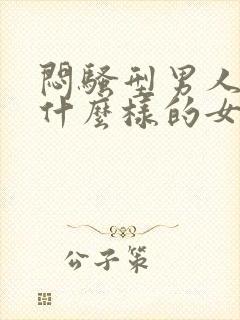 悶騷型男人
什麼樣的女
公子策